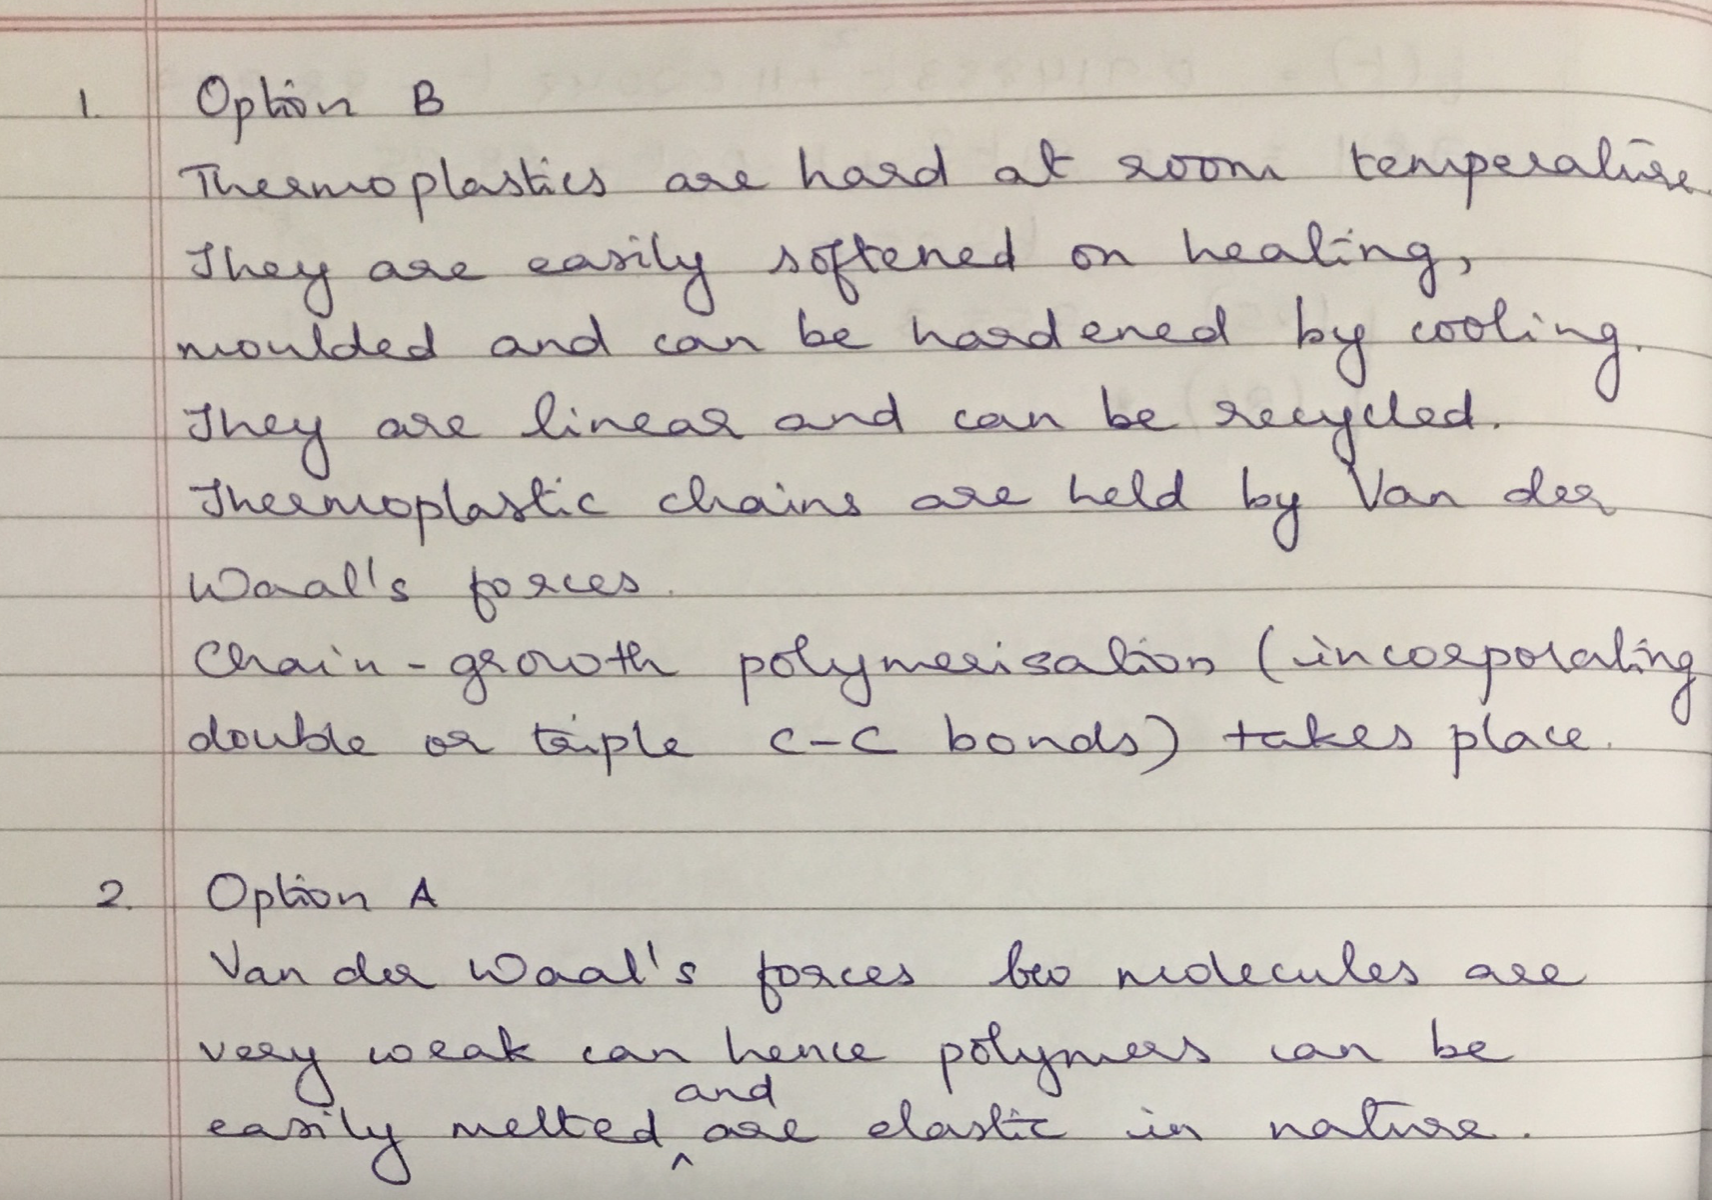 1. Option B
Thermoplastics are hard at room temperature.
They are easily softened on heating,
moulded and can be hardened by cooling.
They are linear and can be recycled.
Thermoplastic chains are held by Van der
Waal's forces.
Chain-growth polymerisation (incorporating
double or triple C-C bonds) takes place.
2. Option A
Van der Waal's forces b/w molecules are
very weak can hence polymers can be
easily melted and are elastic in nature.